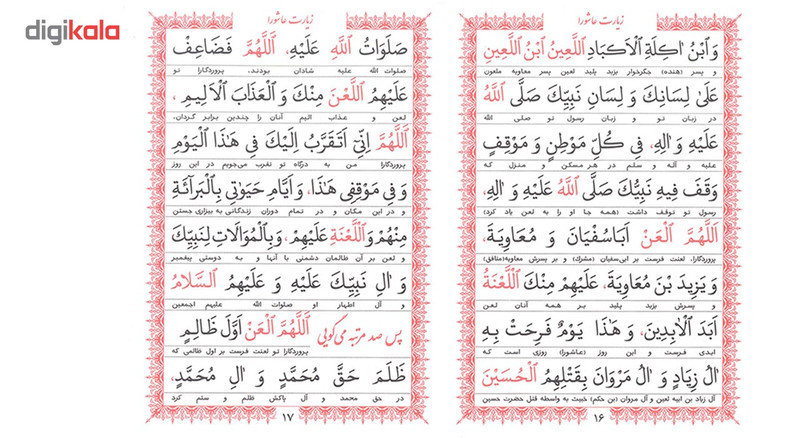 digikala
زیارت عاشورا
وَ ابْنُ اٰكِلَةِ الْاَكْبَادِ اللَّعِينُ ابْنُ اللَّعِينِ
و پسر (هنده) جگرخوار یزید پلید لعین پسر معاویه ملعون
عَلىٰ لِسَانِكَ وَ لِسَانِ نَبِيِّكَ صَلَّى اللّٰهُ
در زبان تو و زبان رسول تو صلی الله
عَلَيْهِ وَ اٰلِهِ، فِي كُلِّ مَوْطِنٍ وَ مَوْقِفٍ
علیه و آله و سلم در هر مسکن و منزل که
وَقَفَ فِيهِ نَبِيُّكَ صَلَّى اللّٰهُ عَلَيْهِ وَ اٰلِهِ،
رسول تو توقف داشت (همه جا او را به لعن یاد کرد)
اَللّٰهُمَّ الْعَنْ اَبَاسُفْيَانَ وَ مُعَاوِيَةَ،
پروردگارا، لعنت فرست بر ابی‌سفیان (مشرک) و بر پسرش معاویه(منافق)
وَ يَزِيدَ بْنَ مُعَاوِيَةَ، عَلَيْهِمْ مِنْكَ اللَّعْنَةُ
و پسرش یزید پلید بر همه آنان لعن
اَبَدَ الْاٰبِدِينَ، وَ هٰذَا يَوْمٌ فَرِحَتْ بِهِ
ابدی فرست و این روز (عاشورا) روزی است که
اٰلُ زِيَادٍ وَ اٰلُ مَرْوَانَ بِقَتْلِهِمُ الْحُسَيْنَ
آل زیاد بن ابیه لعین و آل مروان (بن حکم) خبیث به واسطه قتل حضرت حسین
۱۶
زیارت عاشورا
صَلَوَاتُ اللّٰهِ عَلَيْهِ، اَللّٰهُمَّ فَضَاعِفْ
صلوات الله علیه شادان بودند، پروردگارا تو
عَلَيْهِمُ اللَّعْنَ مِنْكَ وَ الْعَذَابَ الْاَلِيمَ،
لعن و عذاب الیم آنان را چندین برابر گردان،
اَللّٰهُمَّ اِنِّي اَتَقَرَّبُ اِلَيْكَ فِي هٰذَا الْيَوْمِ
پروردگارا من به درگاه تو تقرب می‌جویم در این روز
وَ فِي مَوْقِفِي هٰذَا، وَ اَيَّامِ حَيٰوتِي بِالْبَرَآئَةِ
و در این مکان و در تمام دوران زندگانی به بیزاری جستن
مِنْهُمْ وَ اللَّعْنَةِ عَلَيْهِمْ، وَ بِالْمُوَالَاتِ لِنَبِيِّكَ
و لعن بر آن ظالمان دشمنی با آنها و به دوستی پیغمبر
وَ اٰلِ نَبِيِّكَ عَلَيْهِ وَ عَلَيْهِمُ السَّلَامُ
و آل اطهار او صلوات الله علیهم اجمعین
پس صد مرتبه می‌گویی اَللّٰهُمَّ الْعَنْ اَوَّلَ ظَالِمٍ
پروردگارا تو لعنت فرست بر اول ظالمی که
ظَلَمَ حَقَّ مُحَمَّدٍ وَ اٰلِ مُحَمَّدٍ،
در حق محمد و آل پاکش ظلم و ستم کرد
۱۷